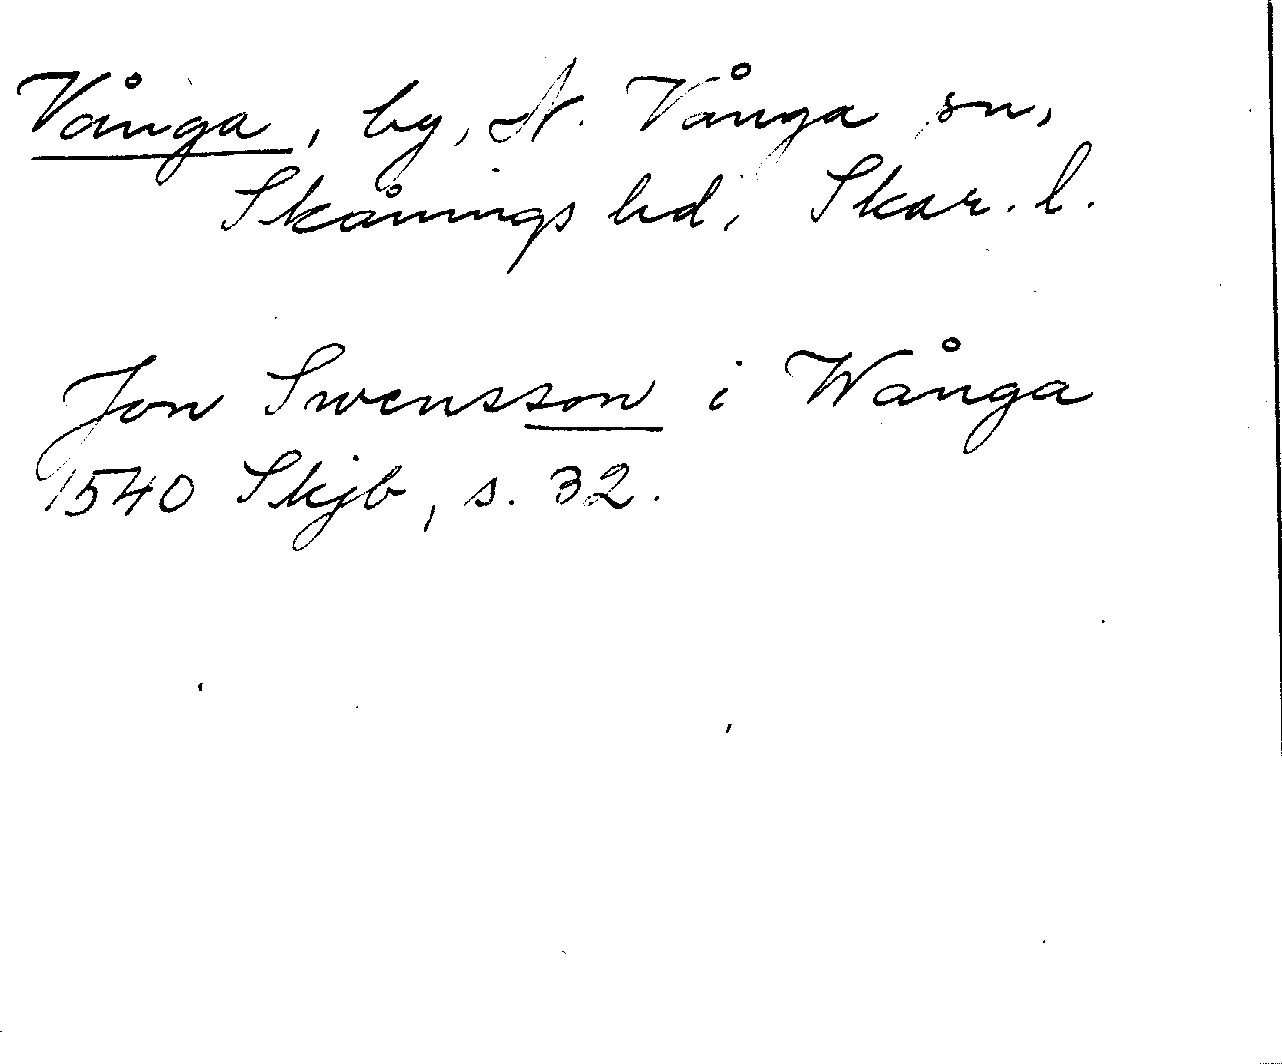 Vånga, by, N. Vånga sn,
Skånings hd, Skar. l.
Jon Swensson i Wånga
1540 Skjb, s. 32.